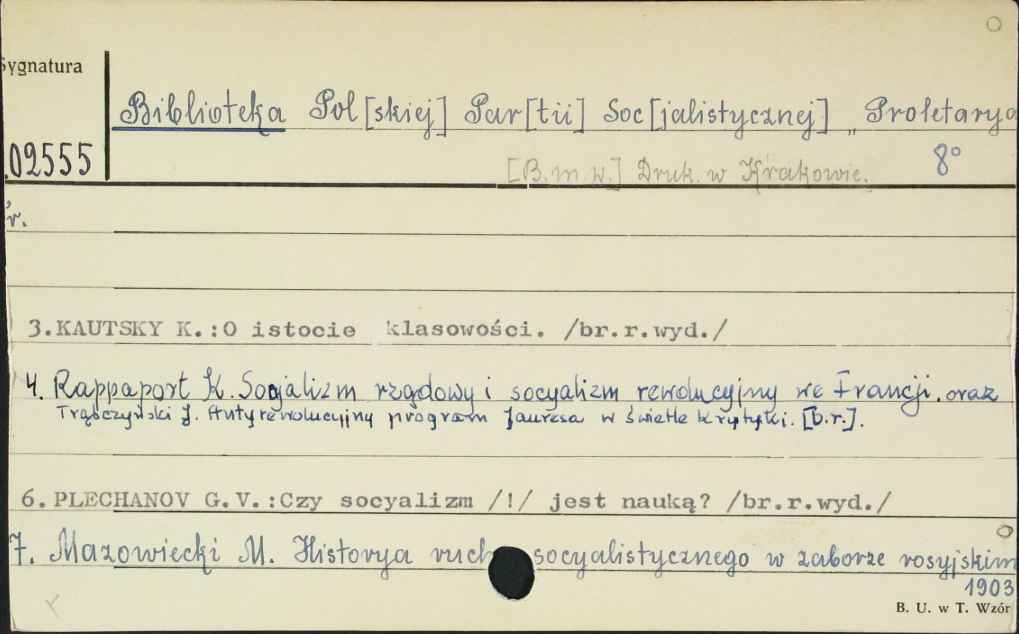 Sygnatura
Biblioteka Pol[skiej] Par[tii] Soc[jalistycznej] „Proletarya
02555
8°
[B.m.w.] Druk. w Krakowie.
r.
3.KAUTSKY K.:O istocie klasowości. /br.r.wyd./
4. Rappaport K. Socjalizm rządowy i socyalizm rewolucyjny we Francji. oraz
Trąbczyński J. Antyrewolucyjny program Jauresa w świetle krytyki. [b.r.].
6.PLECHANOV G.V.:Czy socyalizm /!/ jest nauką? /br.r.wyd./
7. Mazowiecki M. Historya ruch socyalistycznego w zaborze rosyjskim
1903
B. U. w T. Wzór